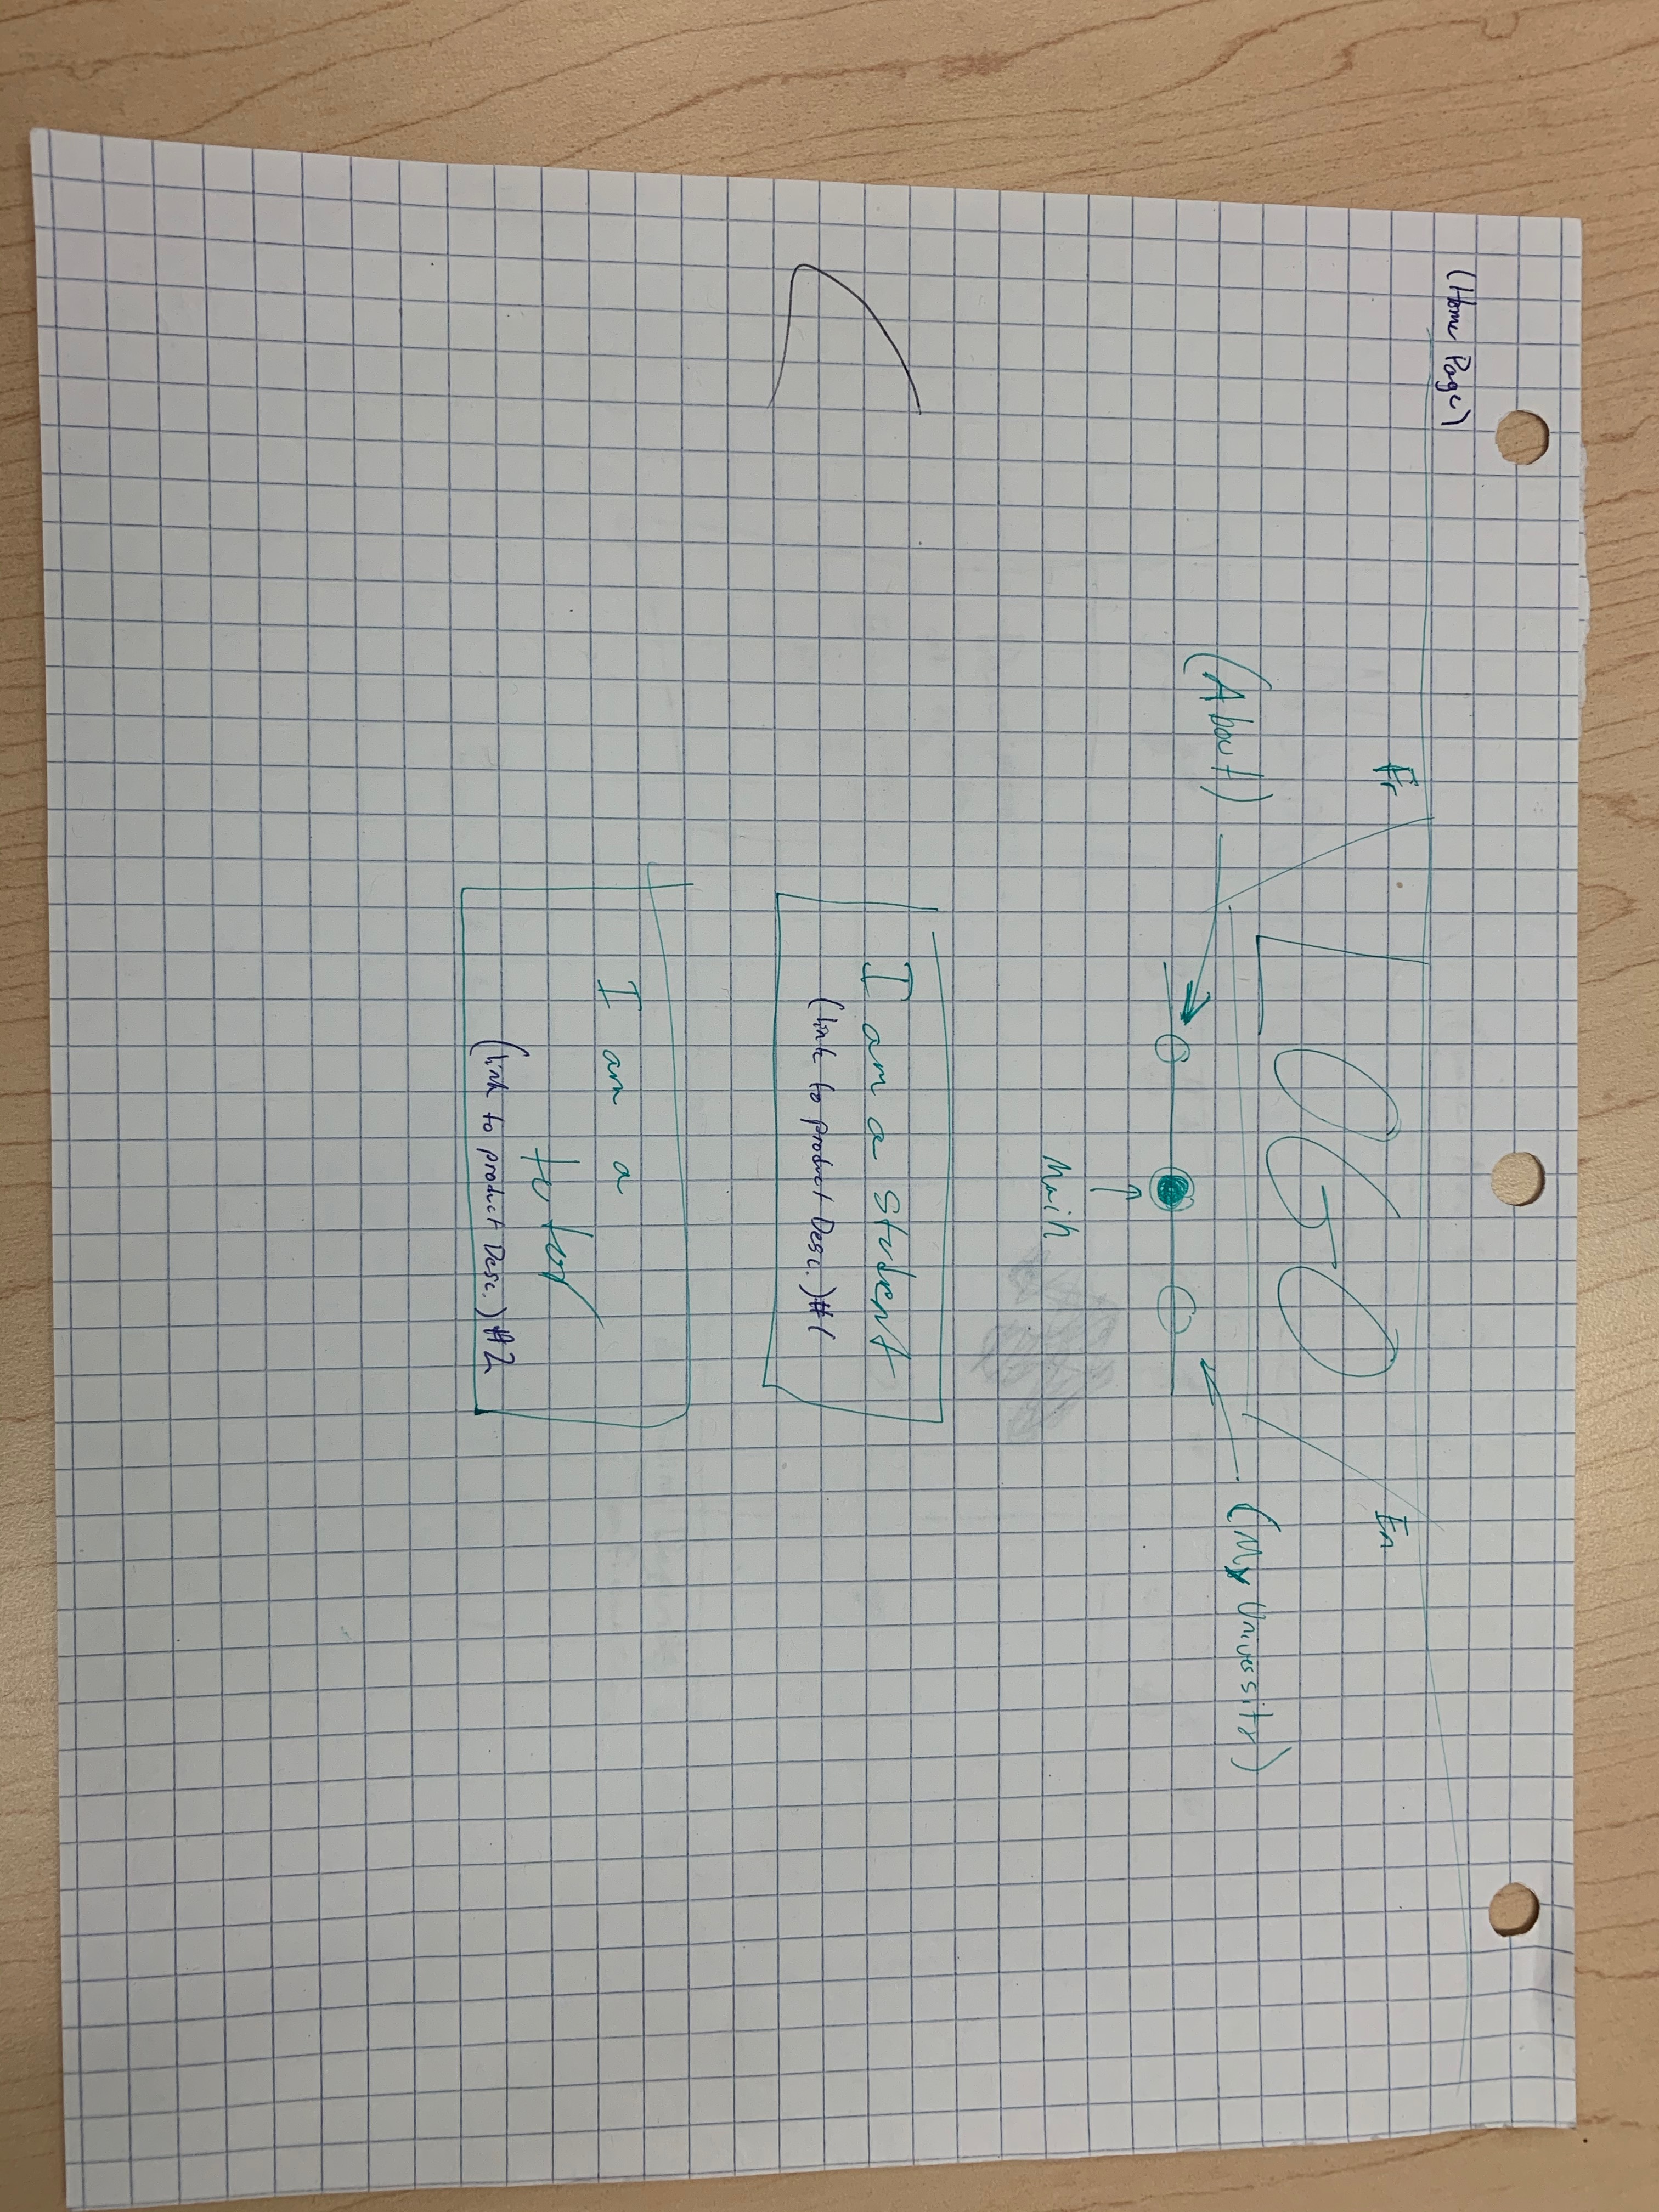 (Home Page)
Fr
LOGO
En
(About)
(My University)
Main
I am a student
(link to product Desc.) #1
I am a
tutor
(link to product Desc.) #2